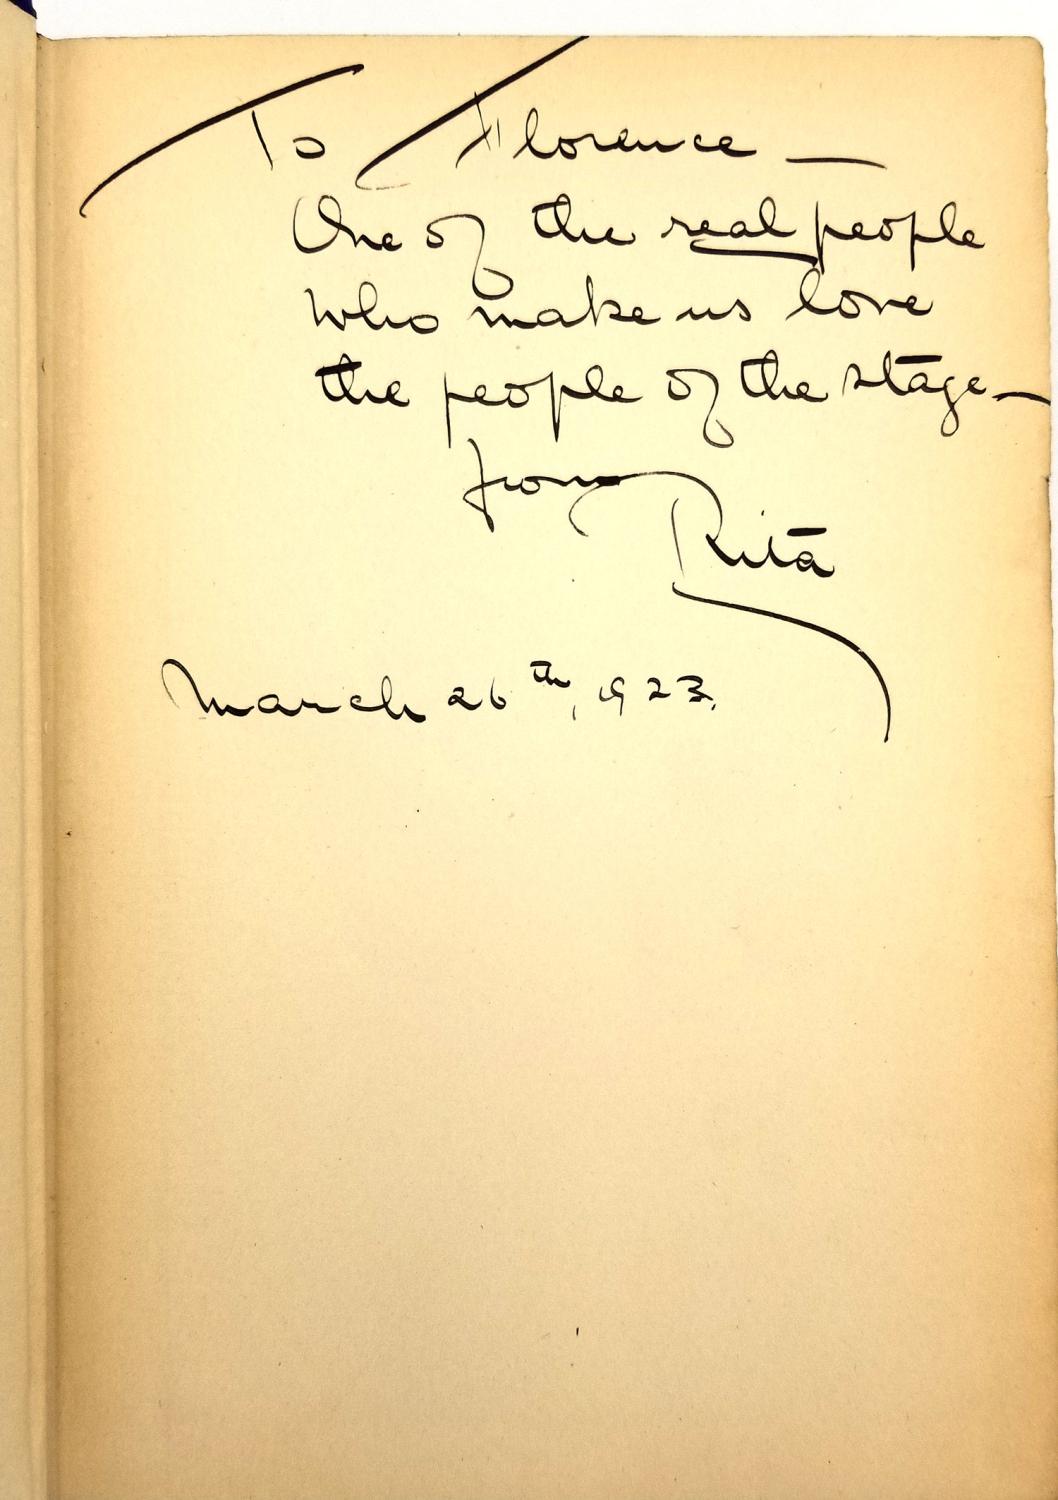 To Florence —
One of the real people
who make us love
the people of the stage —
from
Rita
March 26th, 1923.